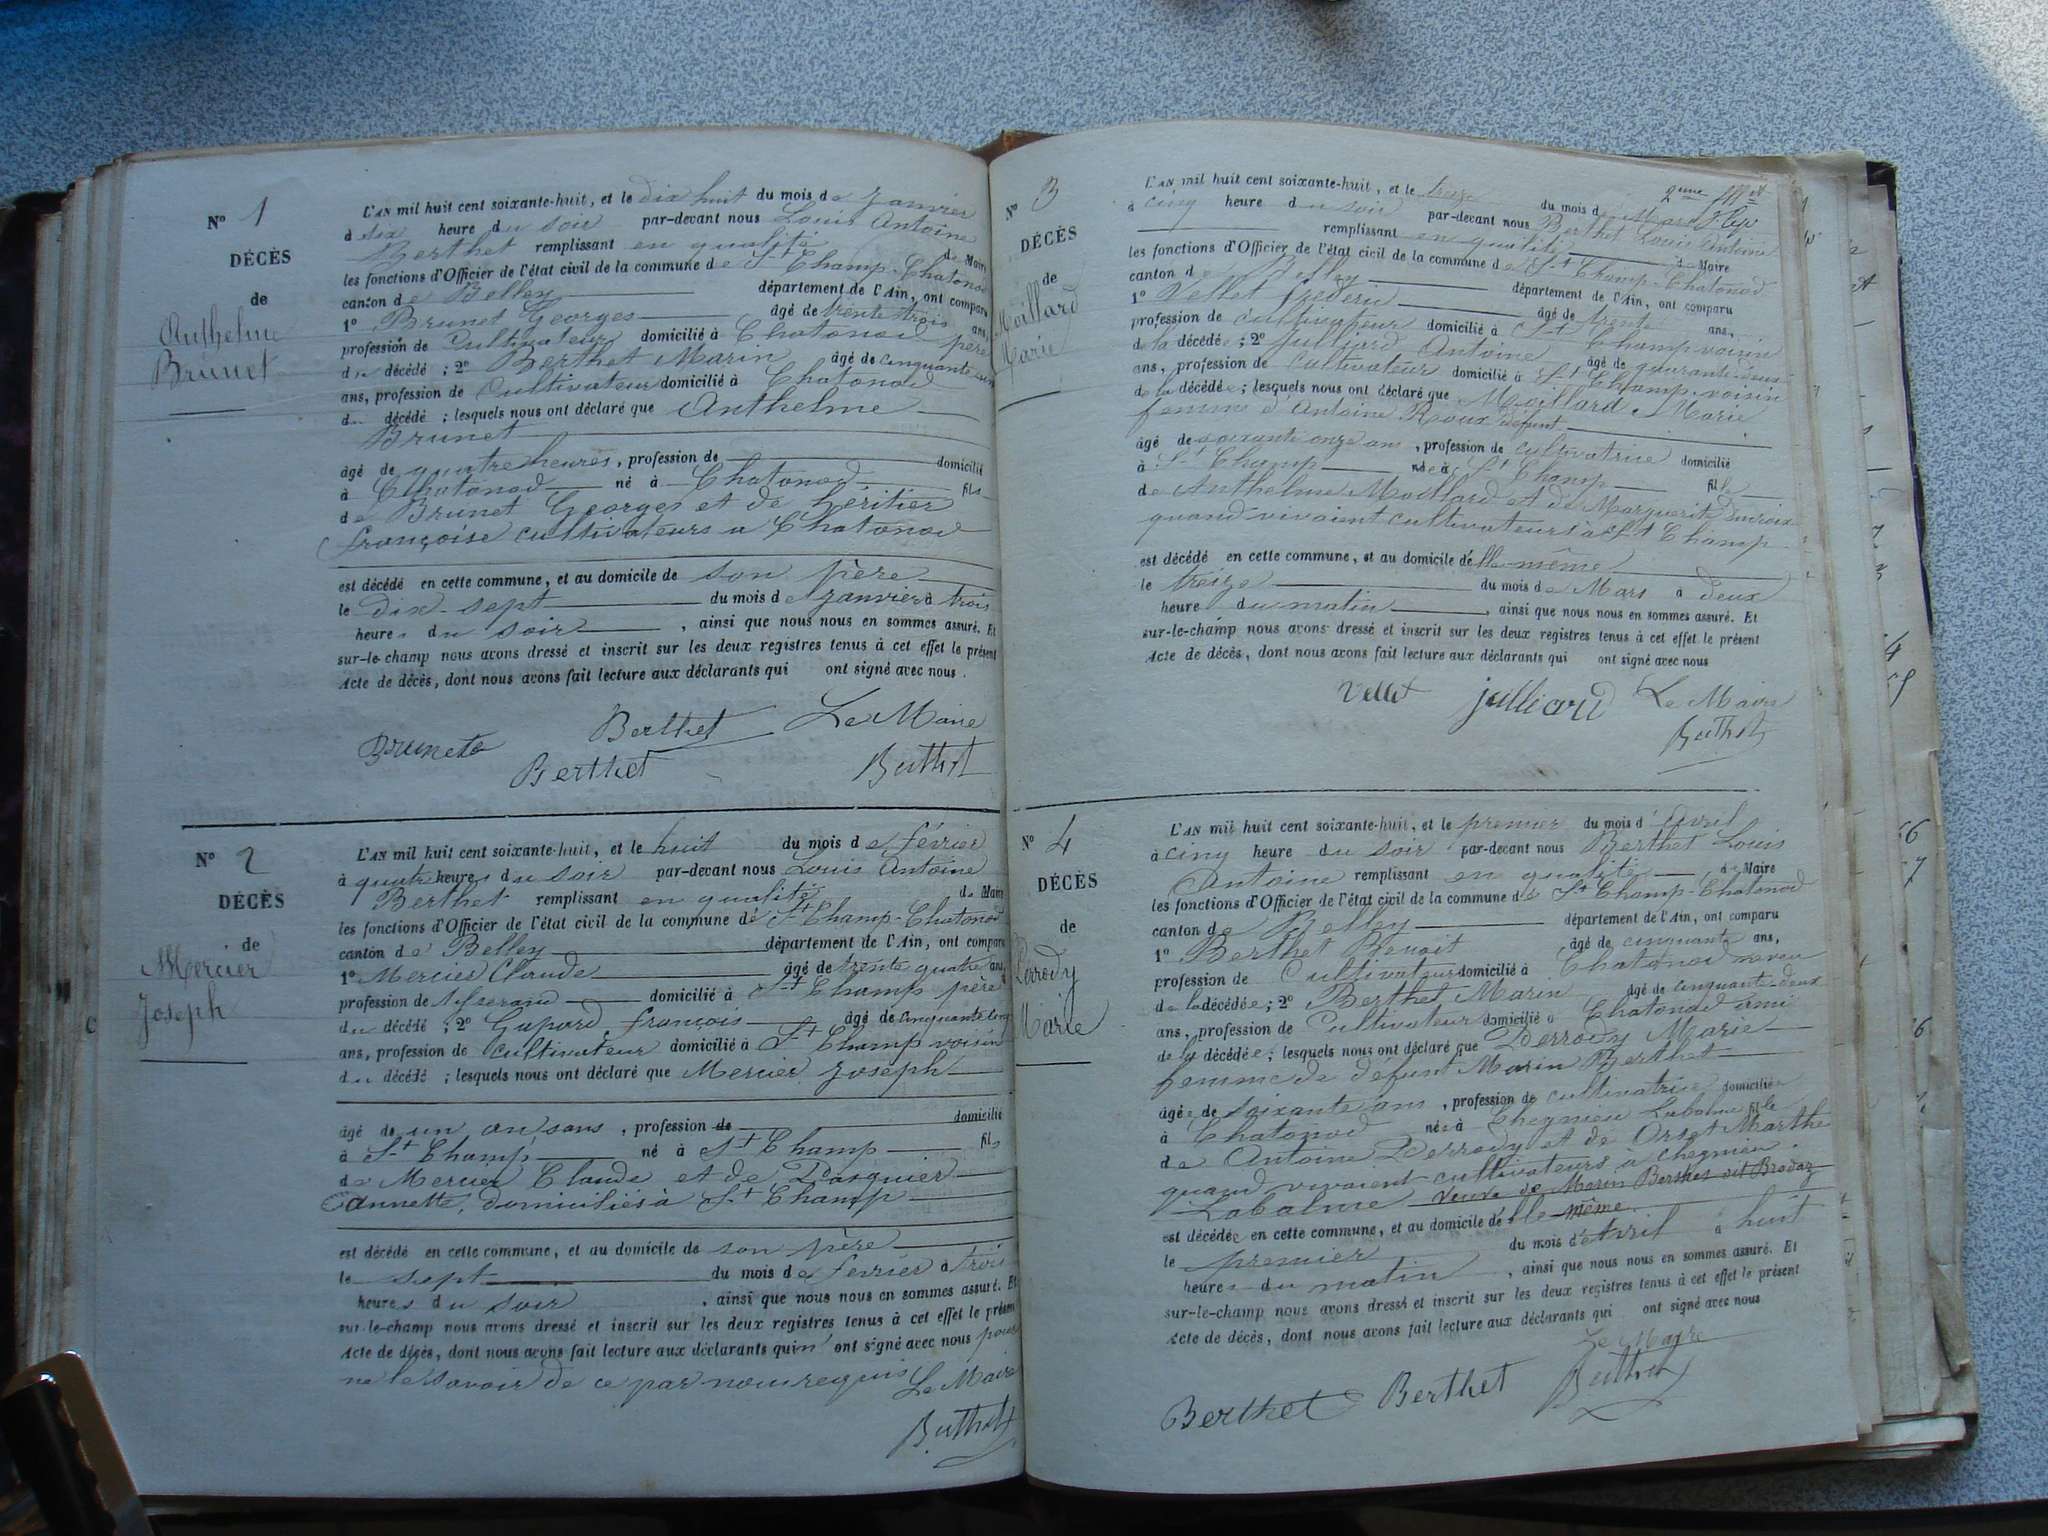 N° 1
DÉCÈS
de
Anthelme
Brunet
L'AN mil huit cent soixante-huit, et le dix huit du mois de Janvier
à six heure du soir par-devant nous Louis Antoine
Berthet remplissant en qualité de Maire
les fonctions d'Officier de l'état civil de la commune de St Champ-Chatonod
canton de Belley département de l'Ain, ont comparu
1° Brunet Georges âgé de trente trois ans,
profession de Cultivateur domicilié à Chatonod père
du décédé ; 2° Berthet Marin âgé de cinquante
ans, profession de Cultivateur domicilié à Chatonod
du décédé ; lesquels nous ont déclaré que Anthelme
Brunet
âgé de quatre heures, profession de domicilié
à Chatonod né à Chatonod fils
de Brunet Georges et de héritier
françoise cultivateurs a Chatonod
est décédé en cette commune, et au domicile de son père
le dix-sept du mois de Janvier à trois
heures du soir, ainsi que nous nous en sommes assuré. Et
sur-le-champ nous avons dressé et inscrit sur les deux registres tenus à cet effet le présent
Acte de décès, dont nous avons fait lecture aux déclarants qui ont signé avec nous.
Berthet Le Maire
Brunet
Berthet Berthet
N° 2
DÉCÈS
de
Mercier
Joseph
L'AN mil huit cent soixante-huit, et le huit du mois de février
à quatre heures du soir par-devant nous Louis Antoine
Berthet remplissant en qualité de Maire
les fonctions d'Officier de l'état civil de la commune de St Champ-Chatonod
canton de Belley département de l'Ain, ont comparu
1° Mercier Claude âgé de trente quatre ans,
profession de domicilié à St Champ père
du décédé ; 2° françois âgé de cinquante cinq
ans, profession de cultivateur domicilié à St Champ voisin
du décédé ; lesquels nous ont déclaré que Mercier Joseph
âgé de un an, profession de domicilié
à St Champ né à St Champ fils
de Mercier Claude et de
annette, domiciliés à St Champ
est décédé en cette commune, et au domicile de son père
le sept du mois de février à trois
heures du soir, ainsi que nous nous en sommes assuré. Et
sur-le-champ nous avons dressé et inscrit sur les deux registres tenus à cet effet le présent
Acte de décès, dont nous avons fait lecture aux déclarants qui n'ont signé avec nous pour
ne le savoir de ce par nous requis Le Maire
Berthet
N° 3
DÉCÈS
de
Moillard
Marie
L'AN mil huit cent soixante-huit, et le treize du mois de Mars
à cinq heure du soir par-devant nous Berthet Louis Antoine
remplissant en qualité de Maire
les fonctions d'Officier de l'état civil de la commune de St Champ-Chatonod
canton de Belley département de l'Ain, ont comparu
1° Vellet frederic âgé de trente ans,
profession de cultivateur domicilié à St Champ voisin
de la décédée ; 2° Julliard Antoine âgé de quarante
ans, profession de Cultivateur domicilié à St Champ voisin
de la décédée ; lesquels nous ont déclaré que Moillard Marie
femme d'Antoine Roux défunt
âgé de soixante onze ans, profession de cultivatrice domicilié
à St Champ née à St Champ fille
de Anthelme Moillard et de Marguerite
quand vivaient cultivateurs à St Champ
est décédé en cette commune, et au domicile d'elle-même
le treize du mois de Mars à deux
heure du matin, ainsi que nous nous en sommes assuré. Et
sur-le-champ nous avons dressé et inscrit sur les deux registres tenus à cet effet le présent
Acte de décès, dont nous avons fait lecture aux déclarants qui ont signé avec nous
Vellet Julliard Le Maire
Berthet
N° 4
DÉCÈS
de
Perrody
Marie
L'AN mil huit cent soixante-huit, et le premier du mois d'Avril
à cinq heure du soir par-devant nous Berthet Louis
Antoine remplissant en qualité de Maire
les fonctions d'Officier de l'état civil de la commune de St Champ-Chatonod
canton de Belley département de l'Ain, ont comparu
1° Berthet Benoit âgé de cinquante ans,
profession de Cultivateur domicilié à Chatonod neveu
de la décédée ; 2° Berthet Marin âgé de cinquante-deux
ans, profession de Cultivateur domicilié à Chatonod ami
de la décédée ; lesquels nous ont déclaré que Perrody Marie
femme de défunt Marin Berthet
âgée de soixante ans, profession de cultivatrice domiciliée
à Chatonod née à Chegnieu Labalme fille
de Antoine Perrody et de Orset Marthe
quand vivaient cultivateurs à Chegnieu
Labalme veuve de Marin Berthet dit Brodaz
est décédée en cette commune, et au domicile d'elle-même
le premier du mois d'Avril à huit
heures du matin, ainsi que nous nous en sommes assuré. Et
sur-le-champ nous avons dressé et inscrit sur les deux registres tenus à cet effet le présent
Acte de décès, dont nous avons fait lecture aux déclarants qui ont signé avec nous
Le Maire
Berthet Berthet Berthet